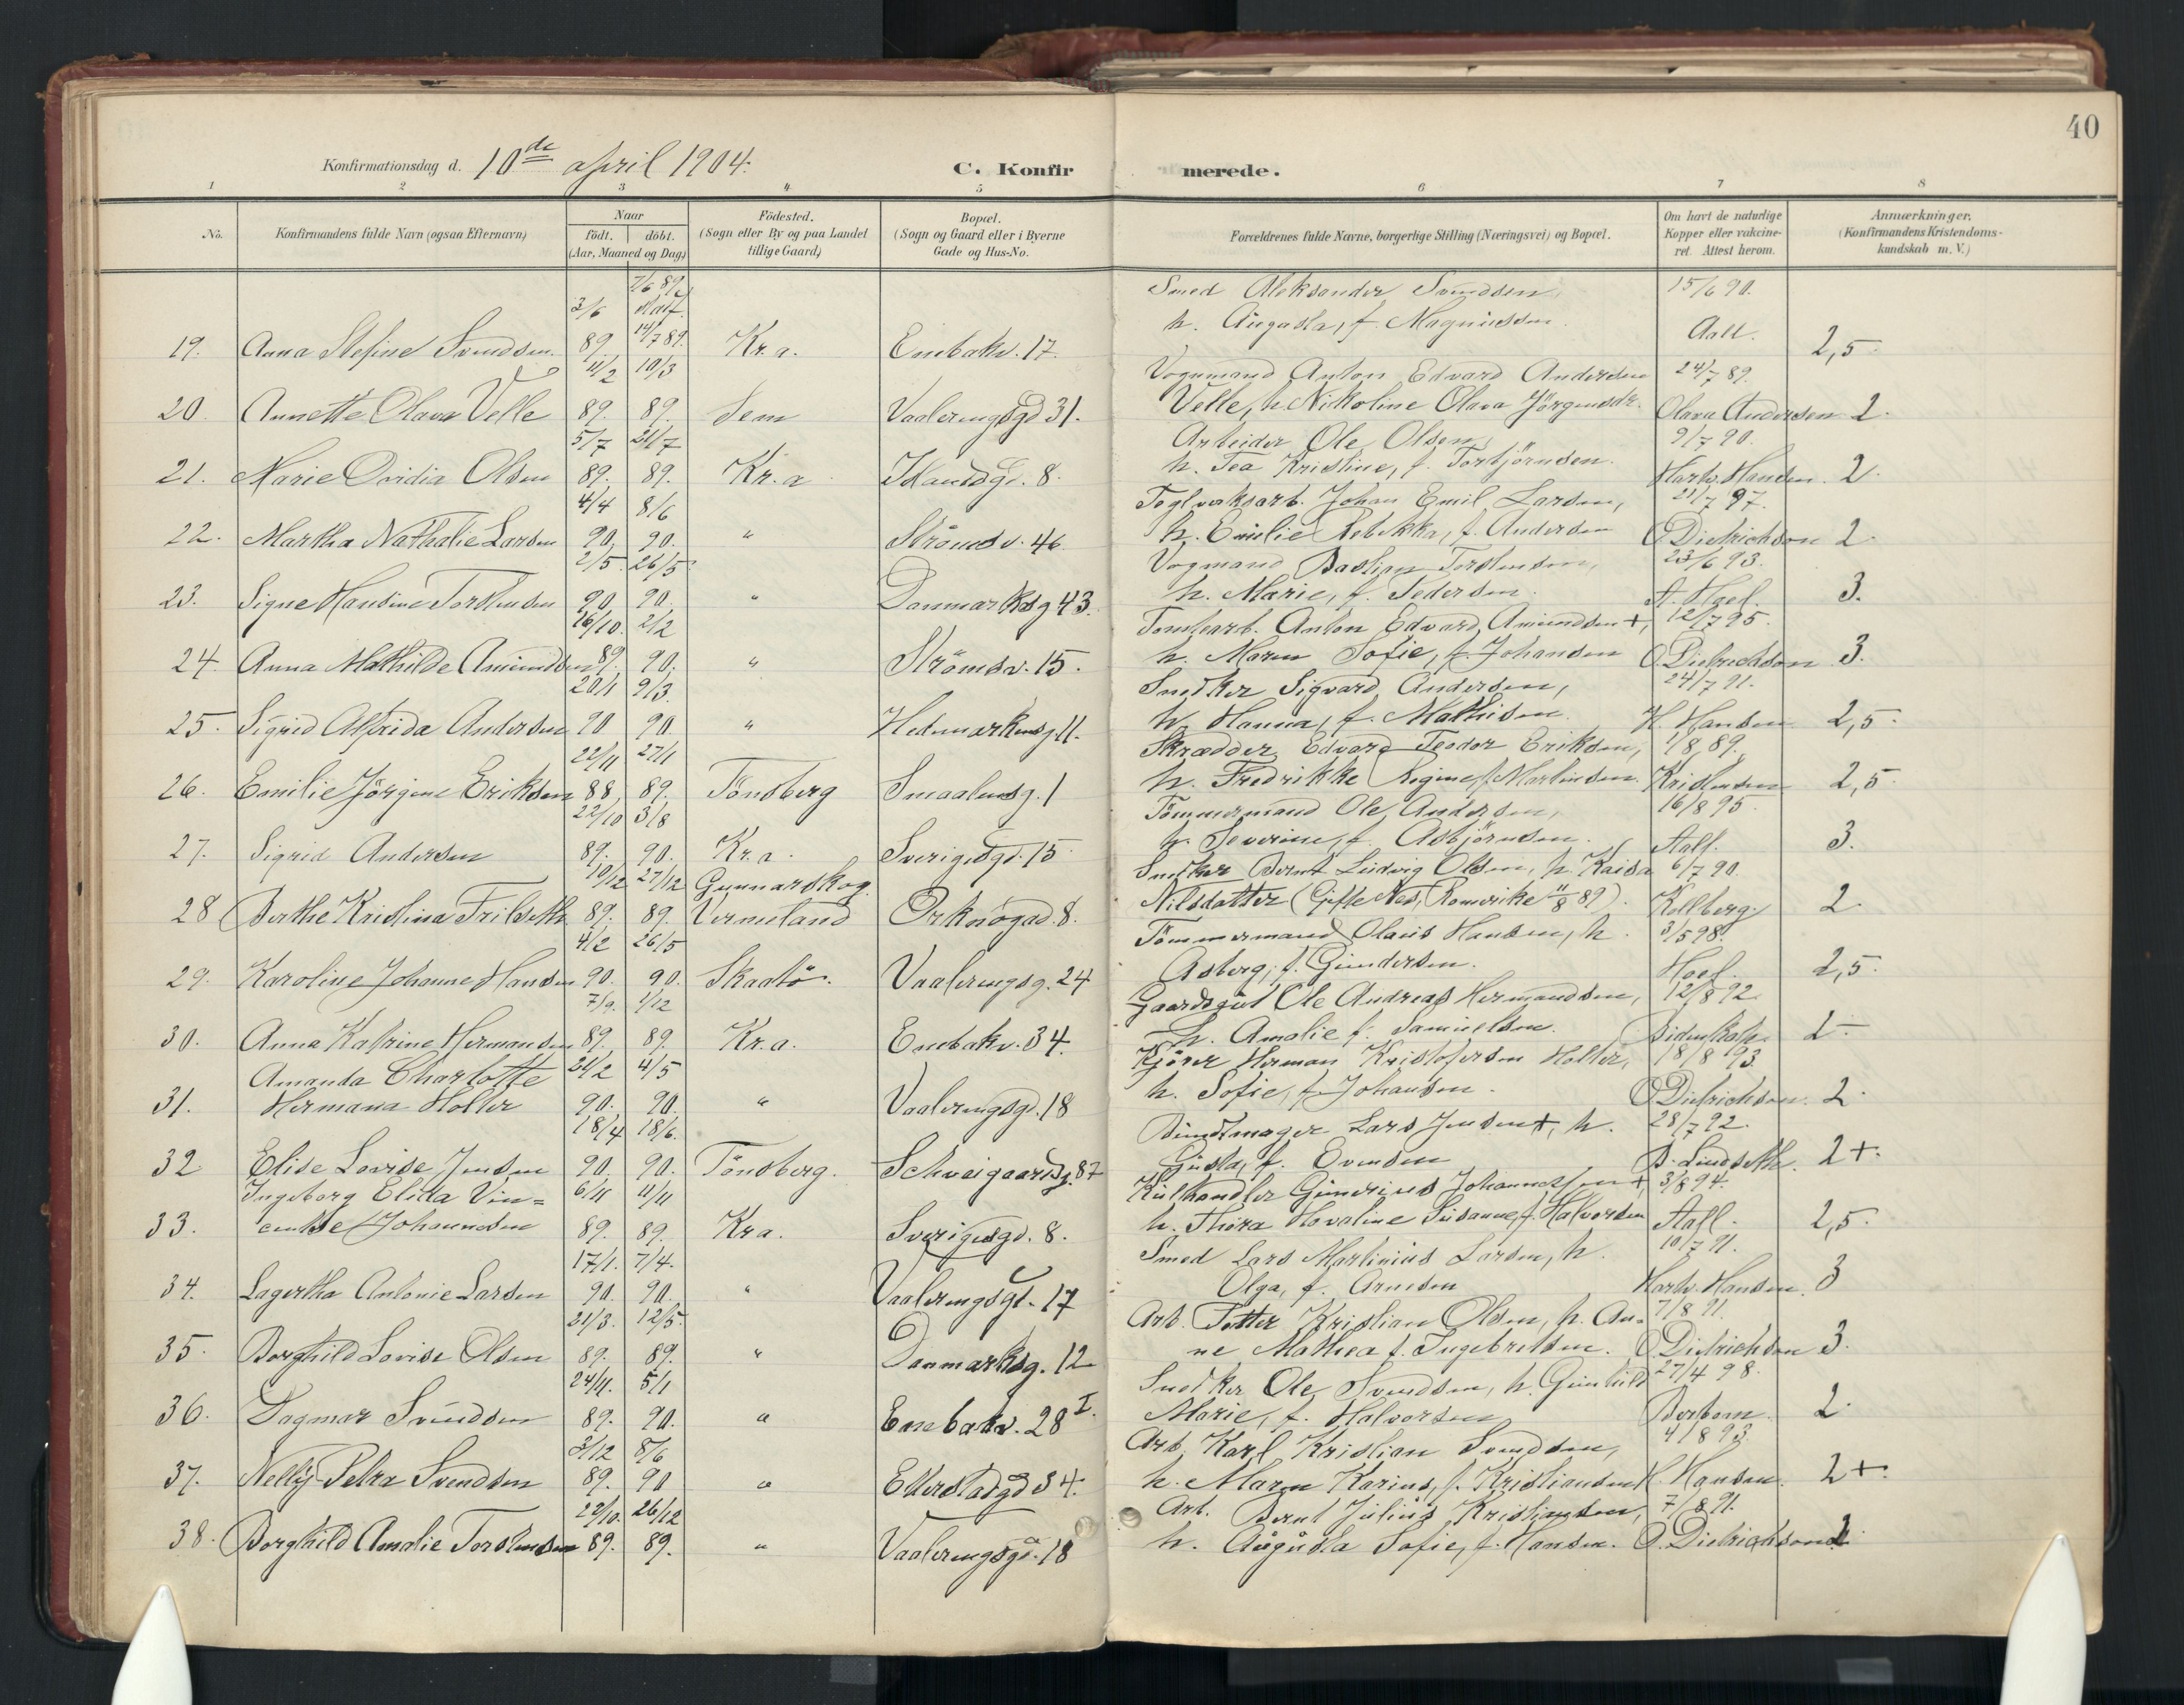 40
Konfirmationsdag d. 10de april 1904.
C. Konfirmerede.
1 2 3 4 5 6 7 8
No.
Konfirmandens fulde Navn (ogsaa Efternavn)
Naar
födt. döbt.
(Aar, Maaned og Dag)
Födested.
(Sogn eller By og paa Landet
tillige Gaard)
Bopæl.
(Sogn og Gaard eller i Byerne
Gade og Hus-No.
Forældrenes fulde Navne, borgerlige Stilling (Næringsvei) og Bopæl.
Om havt de naturlige
Kopper eller vakcine-
ret. Attest herom.
Anmærkninger.
(Konfirmandens Kristendoms-
kundskab m. V.)
7/6 89
3/6
14/7 89.
Smed Aleksander Svendsen
15/6 90.
h. Augusta, f. Magnussen.
19. Anna Stefine Svendsen. 89 Kr.a. Enebakv. 17. Aall. 2,5.
11/2 10/3 Vognmand Anton Edvard Andersen 24/7 89.
20. Annette Olava Velle 89. 89. Sem Vaalerengsgd 31. Velle, h. Nikoline Olava Jörgensdr. Olava Andersen 2.
5/7 21/7 Arbeider Ole Olsen, 9/7 90.
21. Marie Ovidia Olsen 89. 89. Kr.a. 8. h. Tea Kristine, f. Torbjörnsen. Hartv. Hansen. 2.
4/4 8/6 Teglverksarb. Johan Emil Larsen, 21/7 97.
22. Martha Nathalie Larsen 90. 90. " Strömsv. 46. h. Emilie Rebekka, f. Andersen O Dietrichson 2.
2/5. 26/5. Vogmand Bastian Torstensen, 23/6 93.
23. Signe Hansine Torstensen 90. 90. " Danmarksg 43. h. Marie, f. Pedersen. A. Hoel. 3.
16/10. 2/2 Tomtearb. Anton Edvard Amundsen +, 12/7 95.
24. Anna Mathilde Amundsen 89. 90. " Strömsv. 15. h. Maren Sofie, f. Johansen O. Dietrichson 3.
20/1 9/3 Snedker Sigvard Andersen, 24/7 91.
25. Sigrid Alfrida Andersen 90 90. " Hedemarkensg. 11. h. Hanna, f. Mathisen. H. Hansen 2,5.
22/11 27/1 Skrædder Edvard Teodor Eriksen, 1/8 89.
26. Emilie Jörgine Eriksen 88. 89. Tönsberg Smaalensg. 1 h. Fredrikke Regine, f. Martinsen. Kristensen 2,5.
22/10 3/8 Tömmermand Ole Andersen, 16/8 95.
27. Sigrid Andersen 89. 90. Kr.a. Sverigesgd. 15 h. Severine, f. Asbjörnsen. Aall. 3.
10/12 27/12 Gunnarskog Snedker Bernt Ludvig Olsen, h. Kaisa 6/7 90.
28 Berthe Kristina Frilseth 89. 89. Vermeland Orknögad. 8. Nilsdatter (Gifte Nes, Romerike 11/8 89). Kollberg. 2.
4/2 26/5 Tömmermand Olaus Hansen, h. 3/5 98.
29. Karoline Johanne Hansen 90. 90. Skaatö. Vaalerengsg. 24 Asberg, f. Gundersen. Hoel. 2,5.
7/9. 1/12 Gaardsgut Ole Andreas Hermandsen, 12/8 92.
30. Anna Katrine Hermansen 89. 89. Kr.a. Enebakv. 34. h. Amalie f. Samuelsen. Bidenkap. 2-
Amanda Charlotte 21/2 4/5 Kjörer Herman Kristofersen Holter, 18/8 93.
31. Hermana Holter 90. 90. " Vaalerengsgd. 18 h. Sofie, f. Johansen. O Dietrichson. 2.
18/4 18/6. Buntmager Lars Jensen +, h. 28/7 92.
32 Elise Lovise Jensen 90. 90. Tönsberg. Schweigaardsg. 87 Gusta, f. Evensen B. Lindseth. 2+.
Ingeborg Elida Vin= 6/11 11/11 Kulhandler Gunerius Johannessen +, 3/8 94.
33. centse Johannesen 89. 89. Kr.a. Sverigesgd. 8. h. Thora Hovaline Susanne, f. Halvorsen Aall. 2,5.
17/1. 7/4. Smed Lars Martinius Larsen, h. 10/7 91.
34. Lagertha Antonie Larsen 90. 90. " Vaalerengsgt. 17 Olga, f. Arnesen Hartv. Hansen. 3
21/3. 12/5. Arb. Petter Kristian Olsen, h. An= 7/8 91.
35. Borghild Lovise Olsen 89. 89. " Danmarksg. 12 ne Mathea f. Ingebretsen. O. Dietrichson 3.
24/11. 5/1 Snedker Ole Svendsen, h. Gunhild 27/4 98.
36. Dagmar Svendsen 89. 90. " Enebakv. 28 I. Marie, f. Halvorsen Berbom 2.
3/12 8/6 Arb. Karl Kristian Svendsen, 4/8 93.
37. Nelly Petra Svendsen 89. 90 " Etterstadgd 34. h. Maren Karine, f. Kristiansen H. Hansen. 2+.
22/10. 26/12 Art. Bernt Julius Kristiansen, 7/8 91.
38. Borghild Amalie Torstensen 89. 89. " Vaalerengsgd. 18 h. Augusta Sofie, f. Hansen. O. Dietrichson 2.